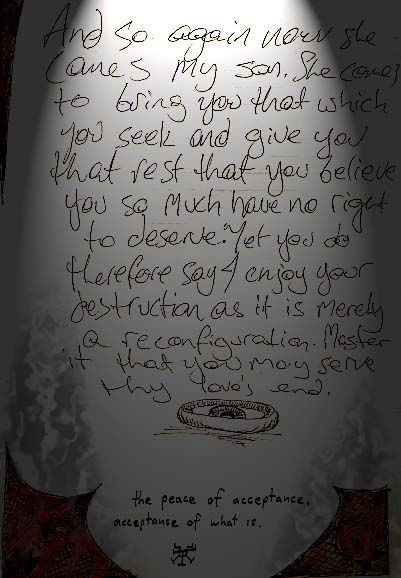 And so again now she
comes my son. She comes
to bring you that which
you seek and give you
that rest that you believe
you so much have no right
to deserve. Yet you do
therefore say I enjoy your
destruction as it is merely
a reconfiguration. Master
it that you may serve
thy love's end.
the peace of acceptance,
acceptance of what is.